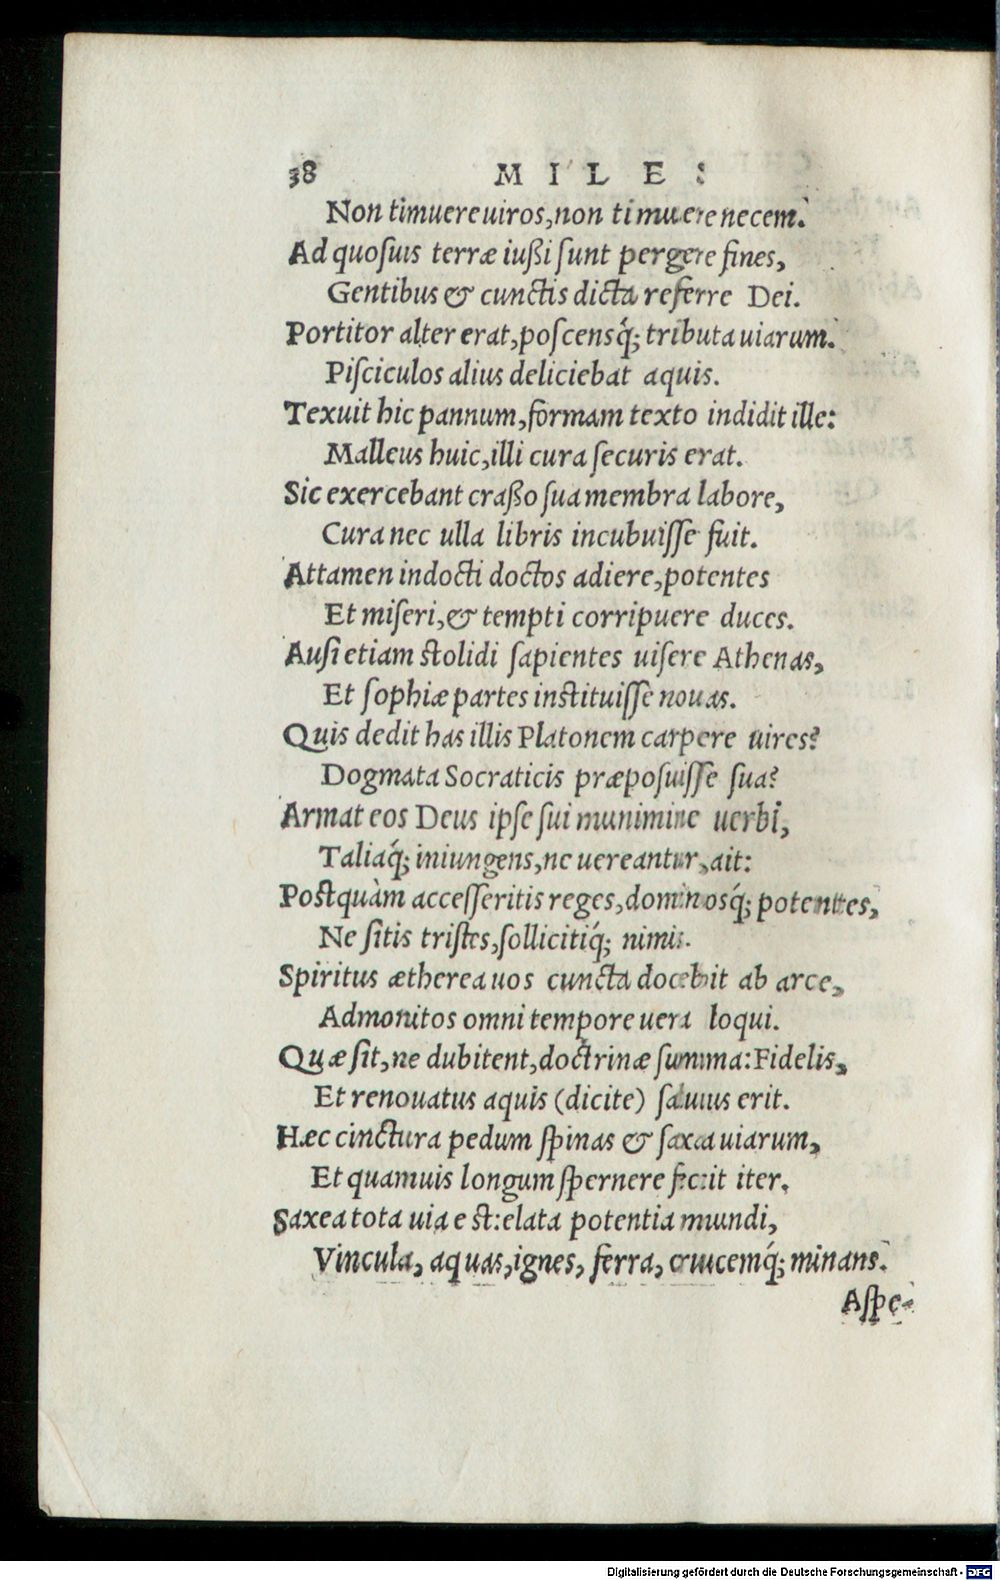 38 MILES
Non timuere uiros, non timuere necem.
Ad quosuis terræ iußi sunt pergere fines,
Gentibus & cunctis dicta referre Dei.
Portitor alter erat, poscensq́; tributa uiarum.
Pisciculos alius deliciebat aquis.
Texuit hic pannum, formam texto indidit ille:
Malleus huic, illi cura securis erat.
Sic exercebant craßo sua membra labore,
Cura nec ulla libris incubuisse fuit.
Attamen indocti doctos adiere, potentes
Et miseri, & tempti corripuere duces.
Ausi etiam stolidi sapientes uisere Athenas,
Et sophiæ partes instituisse nouas.
Quis dedit has illis Platonem carpere uires?
Dogmata Socraticis præposuisse sua?
Armat eos Deus ipse sui munimine uerbi,
Taliaq́; iniungens, ne uereantur, ait:
Postquàm accesseritis reges, dominosq́; potentes,
Ne sitis tristes, sollicitiq́; nimis.
Spiritus ætherea uos cuncta docebit ab arce,
Admonitos omni tempore uera loqui.
Quæ sit, ne dubitent, doctrinæ summa: Fidelis,
Et renouatus aquis (dicite) saluus erit.
Hæc cinctura pedum spinas & saxa uiarum,
Et quamuis longum spernere fecit iter.
Saxea tota uia est: elata potentia mundi,
Vincula, aquas, ignes, ferra, crucemq́; minans.
Aspe-
Digitalisierung gefördert durch die Deutsche Forschungsgemeinschaft - DFG